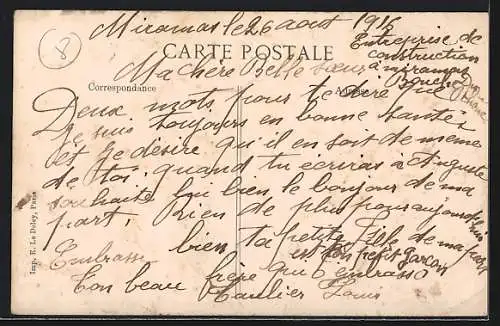 Miramas le 26 aout 1916
CARTE POSTALE
Entreprise de
construction
a miramas
Bouche
Rhone
Ma chère Belle sœur
Correspondance
Deux mots pour te dire que
je suis toujours en bonne santé
et je desire qu'il en soit de meme
de toi. quand tu écriras a Auguste
souhaite lui bien le bonjour de ma
part. Rien de plus pour aujourd'hui
bien ta petite fille de ma part
et ton petit garçon
Embrasse
Ton beau frère qui t embrasse
Louis
8
Imp. E. Le Deley, Paris